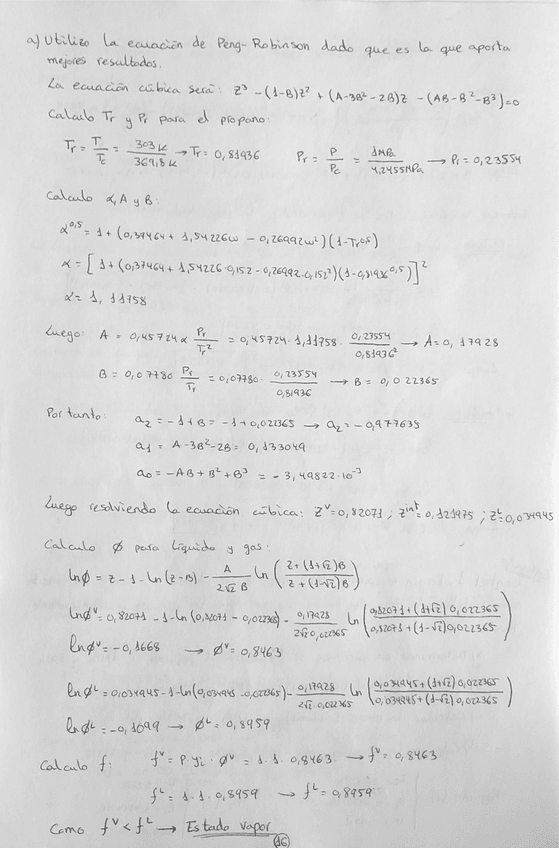 a) Utilizo la ecuación de Peng-Robinson dado que es la que aporta
mejores resultados.
La ecuación cúbica será: Z³ - (1-B)Z² + (A-3B²-2B)Z - (AB-B²-B³)=0
Calculo Tr y Pr para el propano:
Tr = T/Tc = 303 K/369,8 K → Tr = 0,81936    Pr = P/Pc = 1 MPa/4,2455 MPa → Pr = 0,23554
Calculo α, A y B:
α^0,5 = 1 + (0,37464 + 1,54226ω - 0,26992ω²)(1-Tr^0,5)
α = [1 + (0,37464 + 1,54226·0,152 - 0,26992·0,152²)(1-0,81936^0,5)]²
α = 1,11758
Luego: A = 0,45724 α Pr/Tr² = 0,45724·1,11758·0,23554/0,81936² → A = 0,17928
B = 0,07780 Pr/Tr = 0,07780·0,23554/0,81936 → B = 0,022365
Por tanto: a₂ = -1+B = -1+0,022365 → a₂ = -0,977635
a₁ = A-3B²-2B = 0,133049
a₀ = -AB + B² + B³ = -3,49822·10⁻³
Luego resolviendo la ecuación cúbica: Z^V = 0,82071 ; Z^int = 0,121975 ; Z^L = 0,034945
Calculo ϕ para líquido y gas:
lnϕ = Z - 1 - ln(Z-B) - A/(2√2 B) ln((Z+(1+√2)B)/(Z+(1-√2)B))
lnϕ^V = 0,82071 - 1 - ln(0,82071 - 0,022365) - 0,17928/(2√2 0,022365) ln((0,82071+(1+√2)0,022365)/(0,82071+(1-√2)0,022365))
lnϕ^V = -0,1668 → ϕ^V = 0,8463
lnϕ^L = 0,034945 - 1 - ln(0,034945 - 0,022365) - 0,17928/(2√2·0,022365) ln((0,034945+(1+√2)0,022365)/(0,034945+(1-√2)0,022365))
lnϕ^L = -0,1099 → ϕ^L = 0,8959
Calculo f: f^V = P·yi·ϕ^V = 1·1·0,8463 → f^V = 0,8463
f^L = 1·1·0,8959 → f^L = 0,8959
Como f^V < f^L → Estado vapor
16